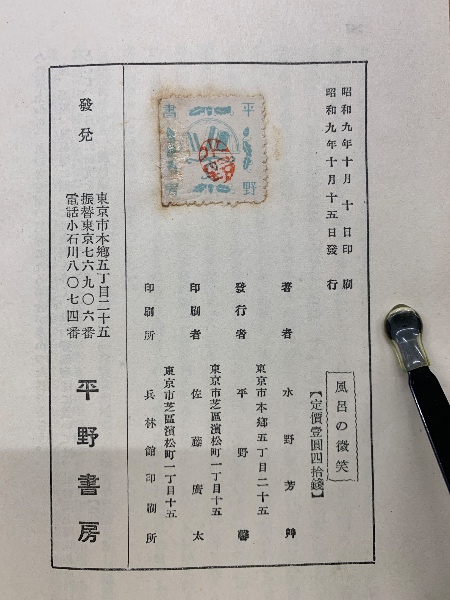 昭和九年十月十日印刷
昭和九年十月十五日發行
風呂の微笑
【定價壹圓四拾錢】
著者 水野芳艸
東京市本鄉五丁目二十五
發行者 平野馨
東京市芝區濱松町一丁目十五
印刷者 佐藤廣太
東京市芝區濱松町一丁目十五
印刷所 兵林館印刷所
平野書房
發兌
東京市本鄉五丁目二十五
振替東京七六九〇六番
電話小石川八〇七四番
平野書房